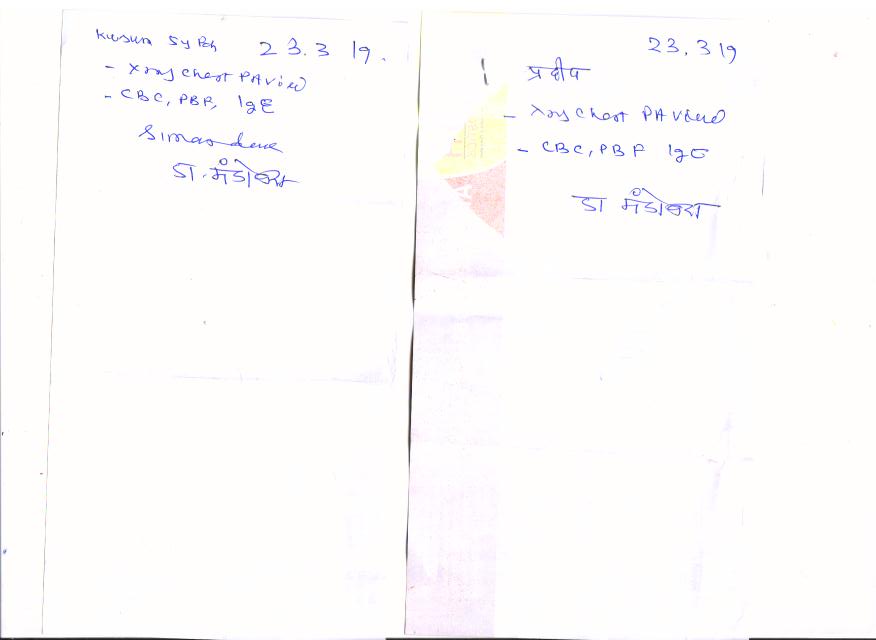 Kusum 23.3 19.
- Xray Chest PA view
- CBC, PBF, IgE
डा. मंडोवरा
23.3 19
प्रदीप
- Xray Chest PA View
- CBC, PBF IgE
डा मंडोवरा